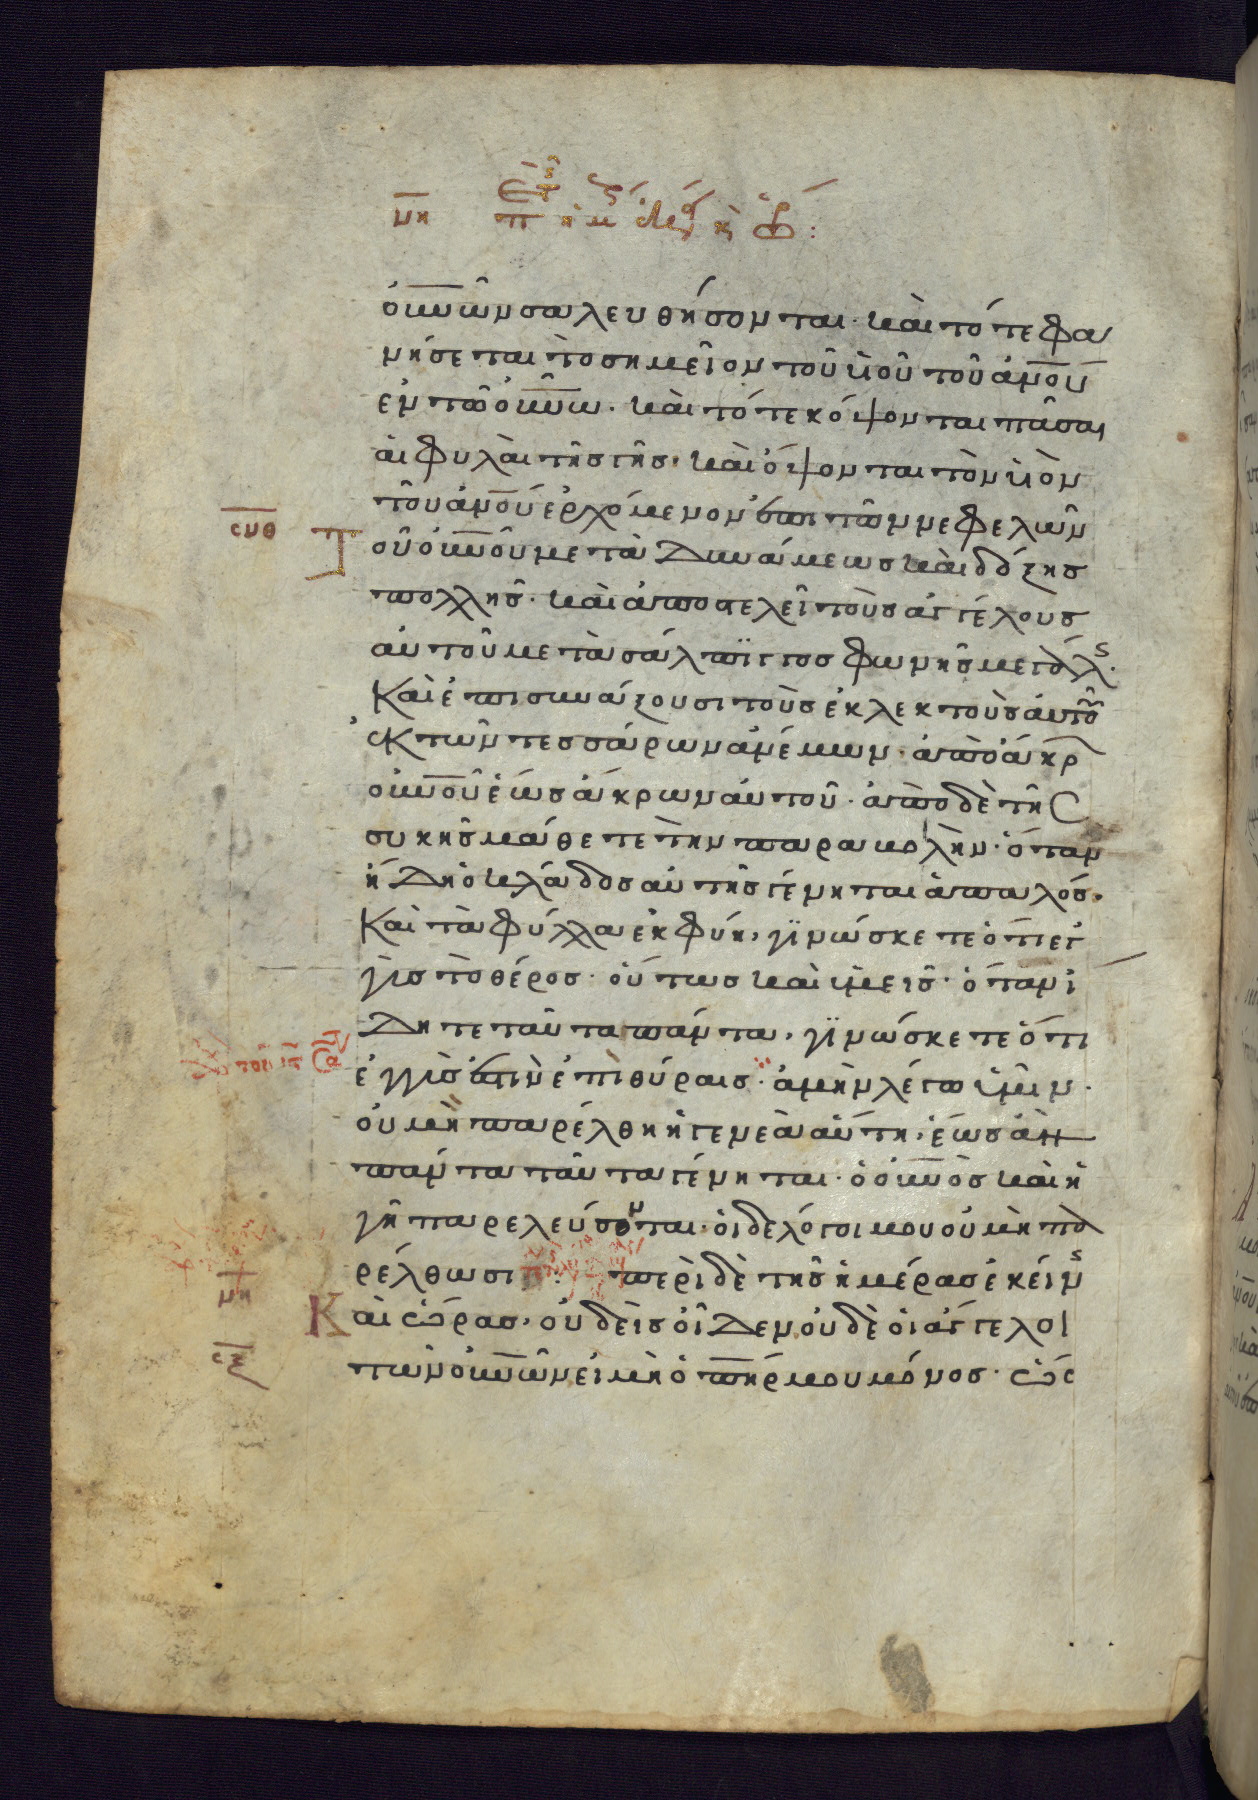 μη περὶ τῆς ἡμέρας καὶ ὥρας:
οὐνῶν σαλευθήσονται· καὶ τότε φα
νήσεται τὸ σημεῖον τοῦ υἱοῦ τοῦ ἀνου
ἐν τῶ οὐνω· καὶ τότε κόψονται πᾶσαι
αἱ φυλαὶ τῆς γῆς· καὶ ὄψονται τὸν υἱὸν
τοῦ ἀνου ἐρχόμενον ἐπι τῶν νεφελῶν
σνθ
τοῦ οὐνοῦ μετὰ δυνάμεως καὶ δόξης
πολλῆς· καὶ ἀποστελεῖ τοὺς ἀγγέλους
αὐτοῦ μετὰ σάλπϊγγος φωνῆς μεγάλης·
Καὶ ἐπισυνάξουσι τοὺς ἐκλεκτοὺς αὐτοῦ
ἐκ τῶν τεσσάρων ἀνέμων· ἀπὸ ἄκρ
οὐνοῦ ἕως ἄκρων αὐτοῦ· ἀπὸ δὲ τῆς
συκῆς μάθετε τὴν παραβολήν· ὅταν
ἤδη ὁ κλάδος αὐτῆς γένηται ἁπαλός·
Καὶ τὰ φύλλα ἐκφύη, γϊνώσκετε ὅτι ἐγ
γὺς τὸ θέρος· οὕτως καὶ ὑμεῖς· ὅταν ἴ
δητε ταῦτα πάντα, γϊνώσκετε ὅτι
ἐγγὺς ἐστὶν ἐπὶ θύραις· ἀμὴν λέγω ὑμῖν·
οὐ μὴ παρέλθη ἡ γενεὰ αὕτη, ἕως ἂν
πάντα ταῦτα γένηται· ὁ οὐνὸς καὶ ἡ
γῆ παρελεύσονται· οἱ δὲ λόγοι μου οὐ μὴ πα
ρέλθωσι περὶ δὲ τῆς ἡμέρας ἐκείνης
μη
Καὶ ὥρας, οὐδεὶς οἶδεν, οὐδὲ οἱ ἄγγελοι
σξ
τῶν οὐνῶν εἰ μὴ ὁ πηρ μου μόνος· ὥς